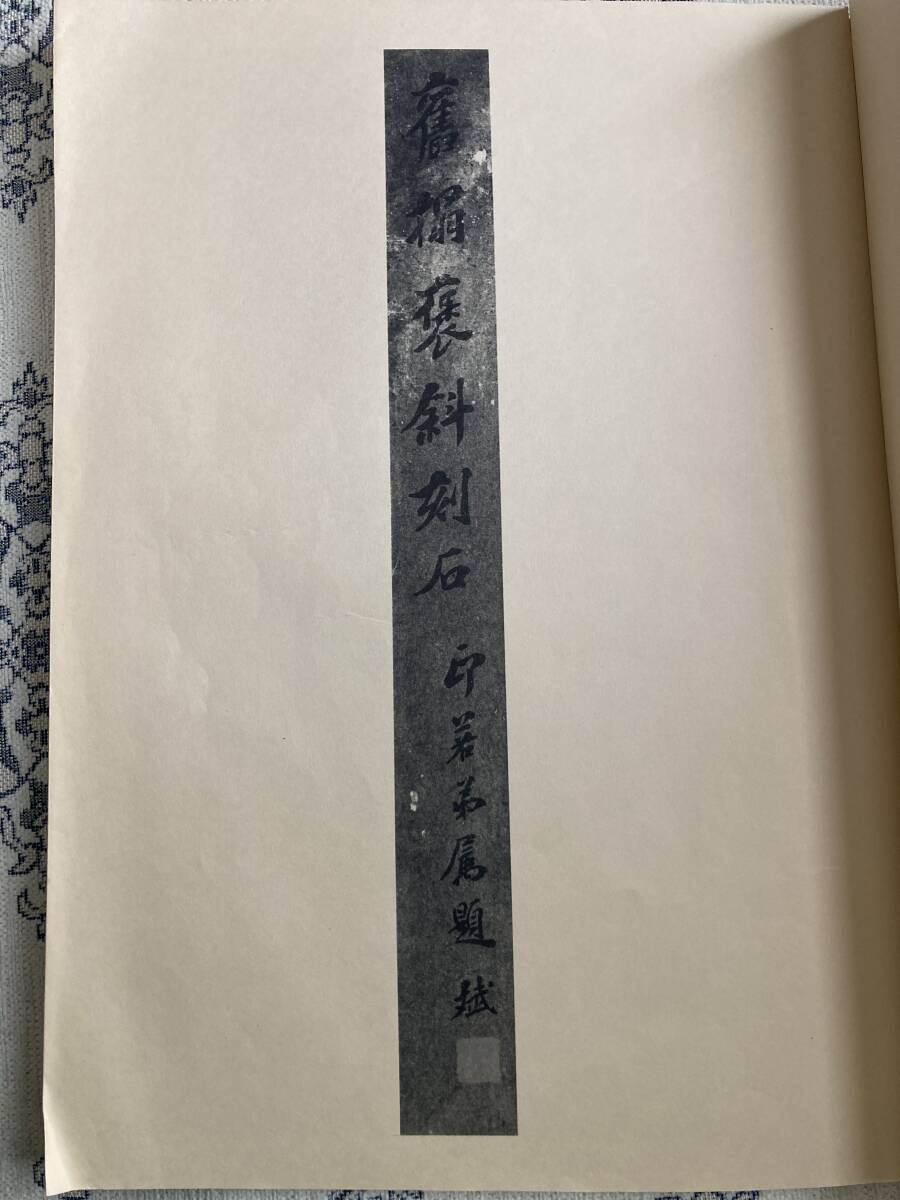 舊搨褒斜刻石 印若弟属題 斌